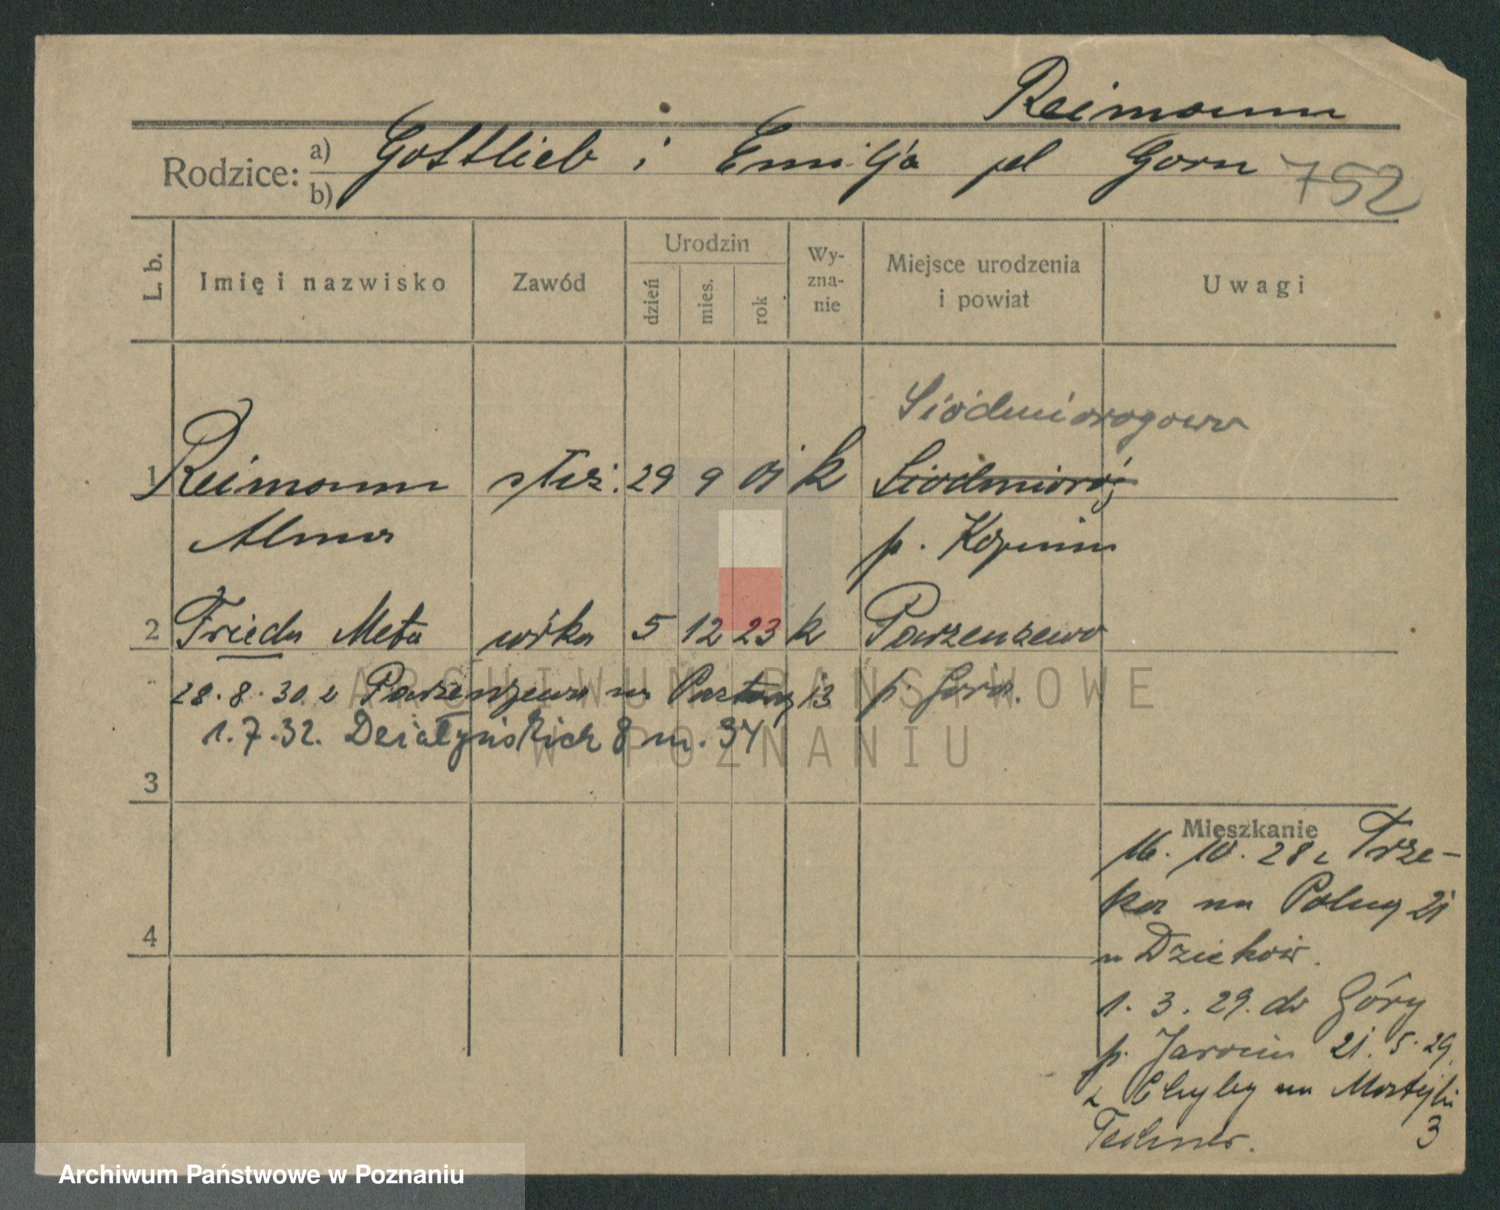 Reimann
Rodzice: a) b) Gottlieb i Emilja Gorn 752
L. b.
Imię i nazwisko
Zawód
Urodzin
dzień mies. rok
Wy-
zna-
nie
Miejsce urodzenia
i powiat
Uwagi
Siódmiorogowo
1 Reimann służ. 29 9 01 k Siódmioróg
Alma p. Koźmin
2 Frieda Meta c'rka 5 12 23 k Parzenczewo
28.8.30. z Parzenczewa na 13 p.
1.7.32. Działyńskich 8 m. 34
ARCHIWUM PAŃSTWOWE
W POZNANIU
3
Mieszkanie
16. 10. 28 z Trze-
ka na Polną 21
1. 3. 29. do Góry
p. Jarocin 21. 5. 29.
z Chyby na
3
4
Archiwum Państwowe w Poznaniu